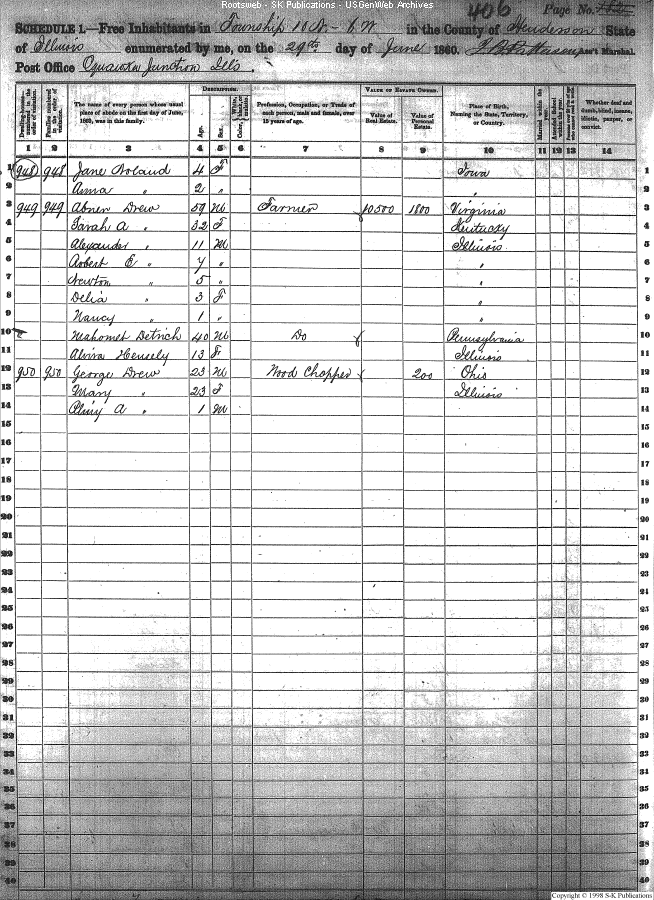 Rootsweb - SK Publications - USGenWeb Archives
406 Page No.
SCHEDULE 1.—Free Inhabitants in Township 10 N - 6 W in the County of Henderson State
of Illinois enumerated by me, on the 29th day of June 1860. Ass't Marshal.
Post Office Oquawka Junction Ills.
Dwelling-houses—numbered in the order of visitation. Families numbered in the order of visitation. The name of every person whose usual place of abode on the first day of June, 1860, was in this family. DESCRIPTION. Age. Sex. Profession, Occupation, or Trade of each person, male and female, over 15 years of age. VALUE OF ESTATE OWNED. Value of Real Estate. Value of Personal Estate. Place of Birth, Naming the State, Territory, or Country. Married within the year. Whether deaf and dumb, blind, insane, idiotic, pauper, or convict.
1 2 3 4 5 6 7 8 9 10 11 12 13 14
1 948 948 Jane Noland 4 F Iowa 1
2 Anna " 2 " " 2
3 949 949 Abner Drew 59 M Farmer 10500 1800 Virginia 3
4 Sarah A " 32 F Kentucky 4
5 Alexander " 11 M Illinois 5
6 Robert E " 7 " " 6
7 Newton " 5 " " 7
8 Delia " 3 F " 8
9 Nancy " 1 " " 9
10 Mahomet Detrich 40 M Do Pennsylvania 10
11 Alvira Hensely 13 F Illinois 11
12 950 950 George Drew 23 M Wood Chopper 200 Ohio 12
13 Mary " 23 F Illinois 13
14 Pliny A " 1 M 14
15 15
16 16
17 17
18 18
19 19
20 20
21 21
22 22
23 23
24 24
25 25
26 26
27 27
28 28
29 29
30 30
31 31
32 32
33 33
34 34
35 35
36 36
37 37
38 38
39 39
40 40
Copyright © 1998 S-K Publications